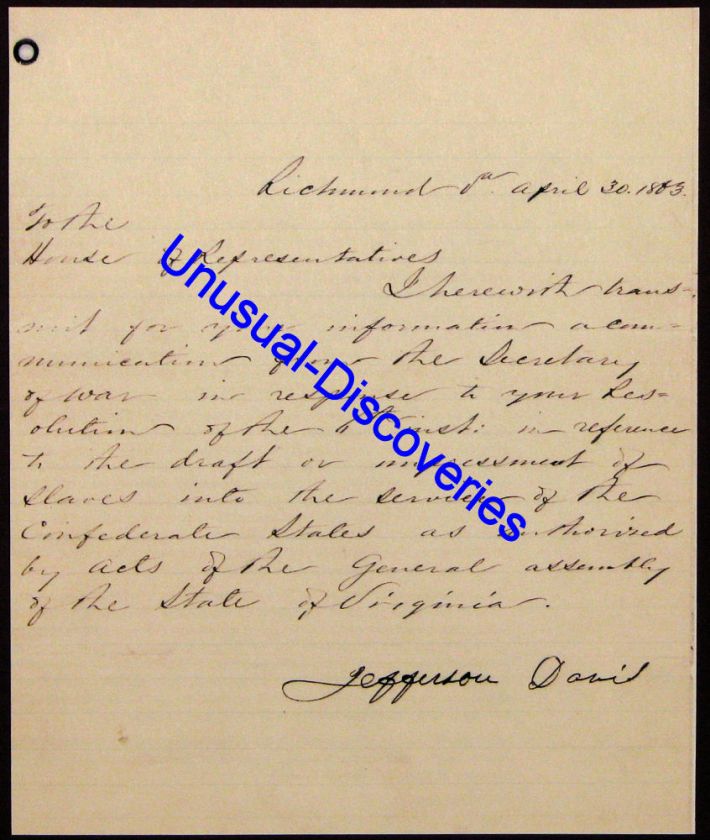 Richmond Va. april 30. 1863.
To the
House of Representatives
I herewith trans-
mit for your information a com-
munication from the Secretary
of war in response to your Res-
olution of the inst: in reference
to the draft or impressment of
slaves into the service of the
Confederate States as authorised
by acts of the General assembly
of the State of Virginia.
Jefferson Davis
Unusual-Discoveries